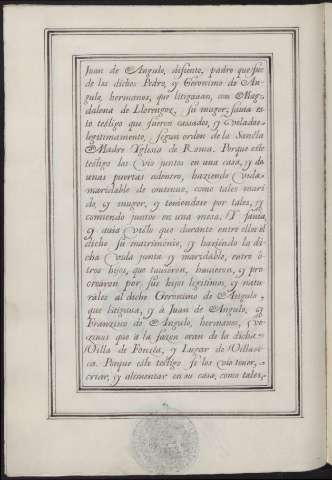 Juan de Angulo, difunto, padre que fue
de los dichos Pedro, y Geronimo de An-
gulo, hermanos, que litigauan, con Mag-
dalena de Llorengoz, su muger; sauia es-
to testigo que fueron cassados, y velados
legitimamente, segun orden de la Sancta
Madre Yglesia de Roma. Porque este
testigo los vio juntos en una casa, y de
unas puertas adentro, haziendo vida
maridable de contenuo, como tales mari
do, y muger, y teniendose por tales, y
comiendo juntos en una mesa. Y sauia
y auia visto que durante entre ellos el
dicho su matrimonio, y haziendo la di-
cha vida junta y maridable, entre o-
tros hijos, que tuuieron, huuieron, y pro
crearon por sus hijos legitimos, y natu-
rales al dicho Geronimo de Angulo,
que litigaua, y à Juan de Angulo, y
Franzisco de Angulo, hermanos, ve-
zinos que à la sazon eran de la dicha
Villa de Foncea, y Lugar de
Porque este testigo se los vio tener,
criar, y alimentar en su casa, como tales,